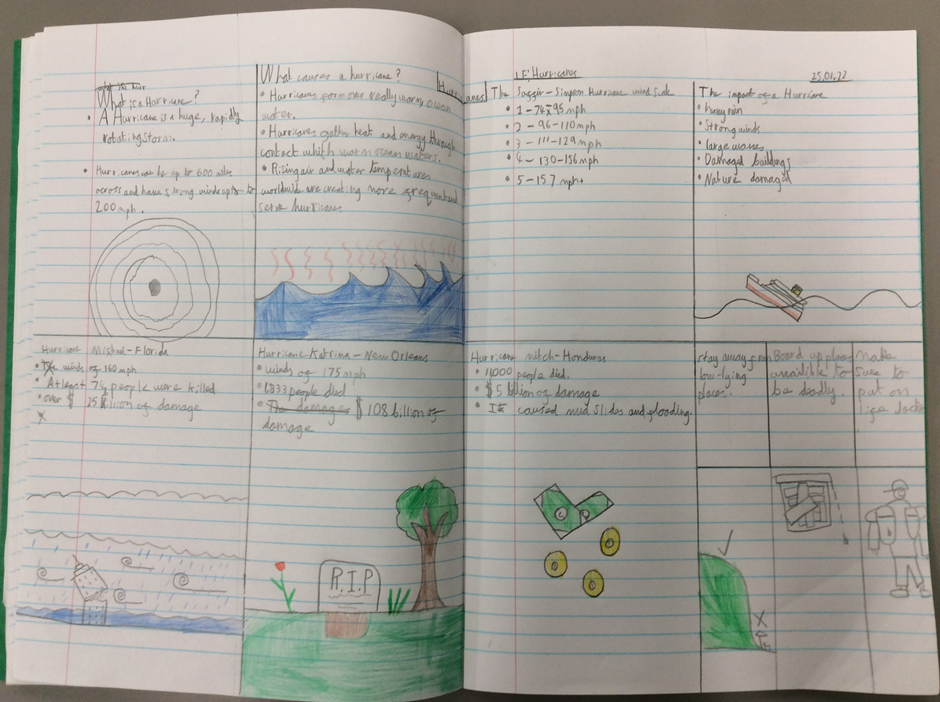 What is a Hurricane?
• A Hurricane is a huge, rapidly
rotating storm.
• Hurricanes can be up to 600 miles
across and have strong winds up to
200 mph.
What causes a hurricane?
• Hurricanes form over really warm ocean
water.
• Hurricanes gather heat and energy through
contact which warm ocean waters.
• Rising air and water temperatures
worldwide are creating more frequent and
hurricanes
Hurricanes
LF: Hurricanes
25.01.22
The Saffir-Simpson Hurricane wind scale
• 1 - 74-95 mph
• 2 - 96-110 mph
• 3 - 111-129 mph
• 4 - 130-156 mph
• 5 - 157 mph+
The impact of a Hurricane
• Heavy rain
• Strong winds
• large waves
• Damaged buildings
• Nature damaged
Hurricane Michael - Florida
• winds of 160 mph
• At least 74 people were killed
• over $ 25 billion of damage
Hurricane Katrina - New Orleans
• winds of 175 mph
• 1833 people died
• The damages $108 billion of
damage
R.I.P
Hurricane mitch - Honduras
• 11000 people died.
• $5 billion of damage
• It caused mud slides and flooding.
stay away from
low-lying
places.
Board up places
availible to
be deadly.
make
sure to
put on
life jacket